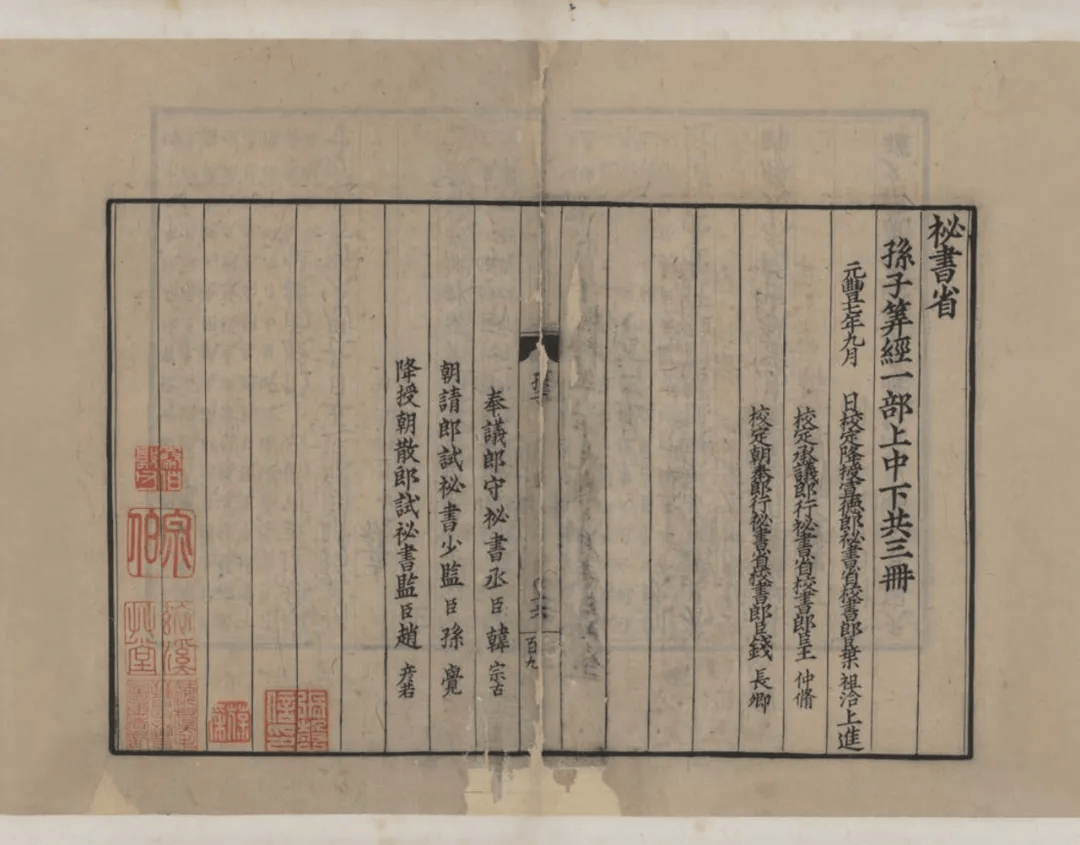 祕書省
孫子筭經一部上中下共三冊
元豐七年九月　日校定降授宣德郎祕書省校書郎臣葉　祖洽上進
校定承議郎行祕書省校書郎臣王　仲脩
校定朝奉郎行祕書省校書郎臣錢　長卿
百九
奉議郎守祕書丞臣韓　宗古
朝請郎試祕書少監臣孫　覺
降授朝散郎試祕書監臣趙　彥若